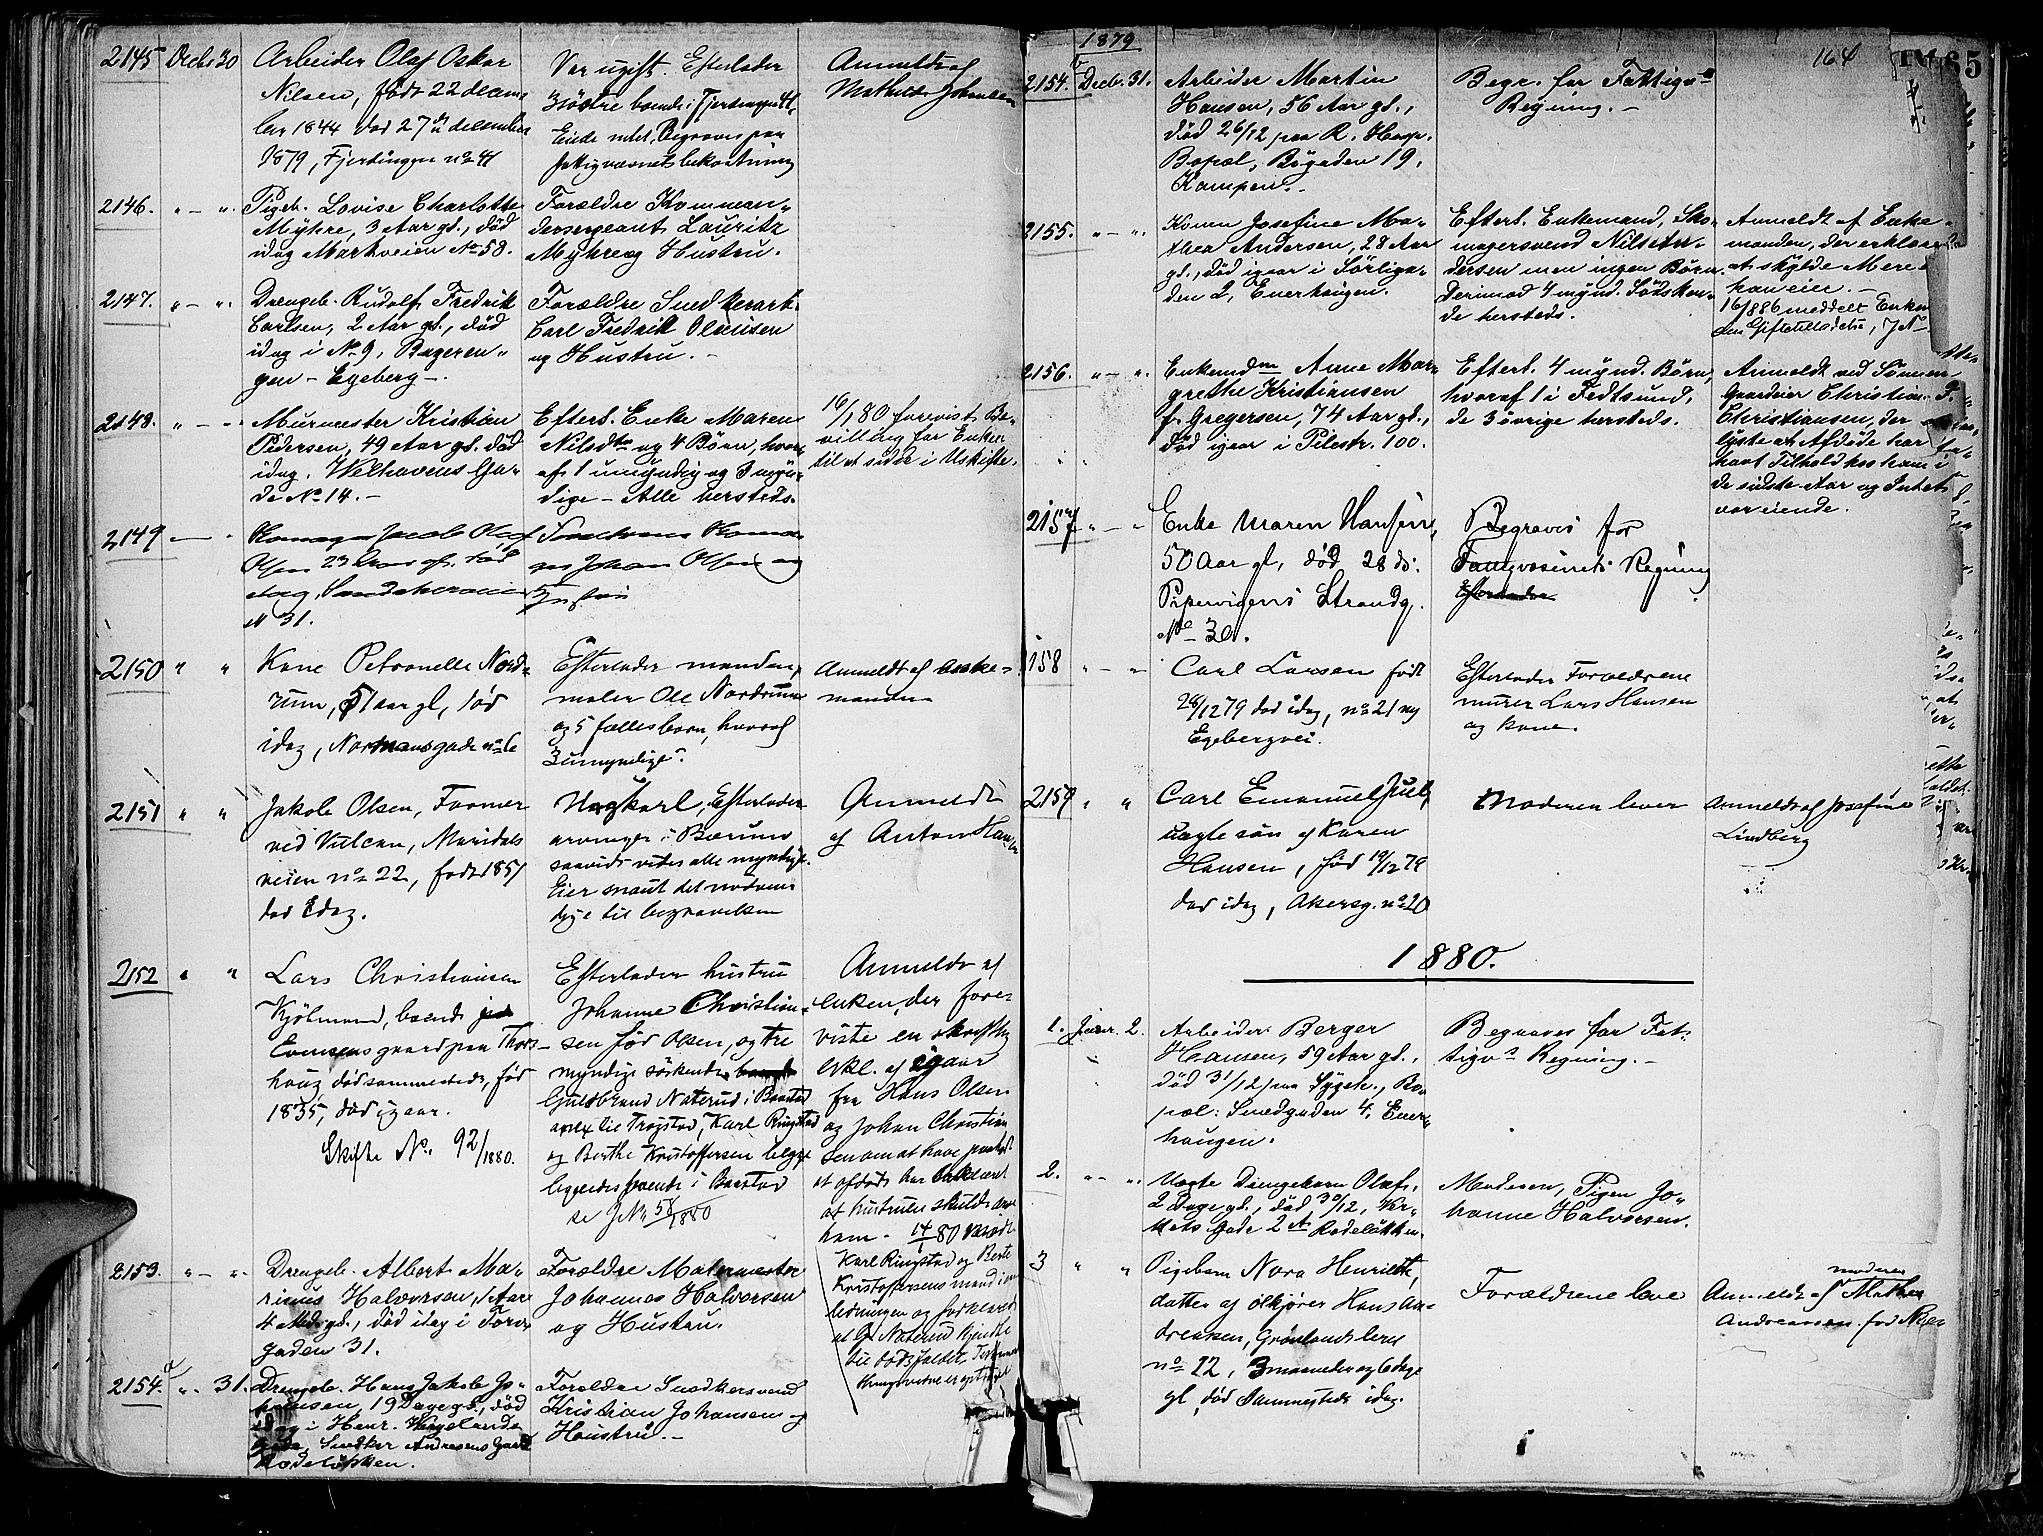 2145 Decbr 30 Arbeider Olaf Oskar
Nilsen, født 22 decem-
ber 1844 død 27de december
1879, Fjerdingen no 41
Var ugift. Efterlader
Søstre boende i Fjerdingen 41,
Eiede intet. Begraves paa
fattigvæsnets bekostning
Anmeldt af
Mathilde Johansen
2146. " - " Pigeb. Lovise Charlotte
Myhre, 3 Aar gl., død
idag Markveien No 58.
Forældre Komman-
dersergeant Lauritz
Myhre og Hustru.
2147. " - " Drengeb. Rudolf Fredrik
Carlsen, 2 Aar gl., død
idag i No 9,
gen - Egeberg -.
Forældre Snedkerarb.
Carl Fredrik Olausen
og Hustru. -
2148. " - " Murmester Kristian
Pedersen, 49 Aar gl. død
idag. Welhavens Ga-
de No 14. -
Efterl. Enke Maren
Nilsdtr og 4 Børn, hvor-
af 1 umyndig og 3 myn-
dige - Alle hersteds.
16/1 80 forevist Be-
villing for Enken
til at sidde i Uskifte.
2149 Jacob Olaf
Olsen 23 Aar gl. død
idag, Sandakerveien
N 31.
Johan Olsen og
Hustru
2150 " " Kone Petronelle Nord-
rum, 51 aar gl, død
idag, Normansgade no 6
Efterlader manden,
maler Ole Nordrum
og 5 fællesbørn, hvoraf
3 umyndige.
Anmeldt af enke-
manden
2151 " " Jakob Olsen, Former
ved Vulcan, Maridals
veien no 22, født 1851
død idag.
Ungkarl, Efterlader
arvinger i Bærum
saavidt vides alle myndige.
Eier snaut det nødven-
dige til begravelsen
Anmeldt
af Anton Hansen
2152 " " Lars Christiansen
Kjølmand, boende
Evensens gaard paa Thors-
haug død sammesteds, fød
1835, død igaar.
Skifte No. 92/1880.
Efterlader hustru
Johanne Christian-
sen fød Olsen, og tre
myndige søskende
Guldbrand Naterud i Baastad
anex til Trøgstad, Karl Ringstad
og Berthe Kristoffersen begge
ligeledes boende i Baastad
se J No 58/1880
Anmeldt af
enken, der fore-
viste en skriftlig
erkl. af igaar
fra Hans Olsen
og Johan Christian
sen om at have paahørt
at afdøde har erklæret
at hustruen skulde arve
ham. 14/1 80
Karl Ringstad og Berte
Kristoffersens mand i an-
ledningen og forklarede
at G. Naterud kjendte
til dødsfaldet.
2153. " - " Drengeb. Albert Ma-
rinus Halvorsen, 1 Aar
4 Mdr gl., død idag i Foss-
gaden 31.
Forældre Malermester
Johannes Halvorsen
og Hustru.
2154.a " 31. Drengeb. Hans Jakob Jo-
hansen, 19 Dage gl., død
idag i Henr. Wergelands
Gade, Snedker Andresens Gaard
Rodeløkken.
Forældre Snedkersvend
Kristian Johansen og
Hustru. -
1879
164
85
2154.b Decbr. 31. Arbeider Martin
Hansen, 56 Aar gl.,
død 26/12 paa R. Hosp.
Bopæl, Bøgaden 19,
Kampen. -
Begr. for Fattigvs
Regning. -
2155. " - " Konen Josefine Ma-
thea Andersen, 28 Aar
gl., død igaar i Sørliga-
den 2, Enerhaugen.
Efterl. Enkemand, Sko-
magersvend Nils An-
dersen men ingen Børn.
Derimod 4 mynd. Søsken-
de hersteds.
Anmeldt af Enke-
manden, der erklære
at skylde Mere
han eier. -
16/8 86 meddelt Enkem
den Giftetilladelse, J No
2156. " - " Enkemdm Anne Mar-
grethe Kristiansen
f. Gregersen, 74 Aar gl.,
død igaar i Pilestr. 100.
Efterl. 4 mynd. Børn,
hvoraf 1 i Fedtsund,
de 3 øvrige hersteds.
Anmeldt ved Sønnen
Gaardeier Christian F.
Christiansen, der
lyste at Afdøde har
havt Tilhold hos ham i
de sidste Aar og Intet
var eiende.
2157 " - " Enke Maren Hansen,
50 Aar gl, død 28 ds.
Pipervigens Strandg.
No 30.
Begraves for
Fattigvæsenets Regning
Efterlader
158 " - " Carl Larsen født
28/12 79 død idag, no 21 ny
Egebergvei.
Efterlader Forældrene
murer Lars Hansen
og kone.
2159 " " Carl Emanuel Juul,
uægte søn af Karen
Hansen, fød 19/12 79
død idag, Akersg. no 20
Moderen lever
Anmeldt af Josefine
Lindberg
1880.
1. Januar. 2. Arbeider Berger
Hansen, 59 Aar gl.,
død 31/12 paa Sygeh., Bo-
pæl: Smedgaden 4, Ener-
haugen.
Begraves for Fat-
tigvs Regning. -
2. " - " Uægte Drengebarn Olaf,
2 Dage gl., død 30/12, Ver-
ksts Gade 2 A Rodeløkken.
Moderen, Pigen Jo-
hanne Halvorsen.
3 " " Pigebarn Nora Henriette,
datter af ølkjører Hans An-
dreasen, Grønlandsleret
no 22, 3 maaneder og 6 dage
gl, død sammesteds idag.
Forældrene leve
Anmeldt af moderen Mathea
Andreassen